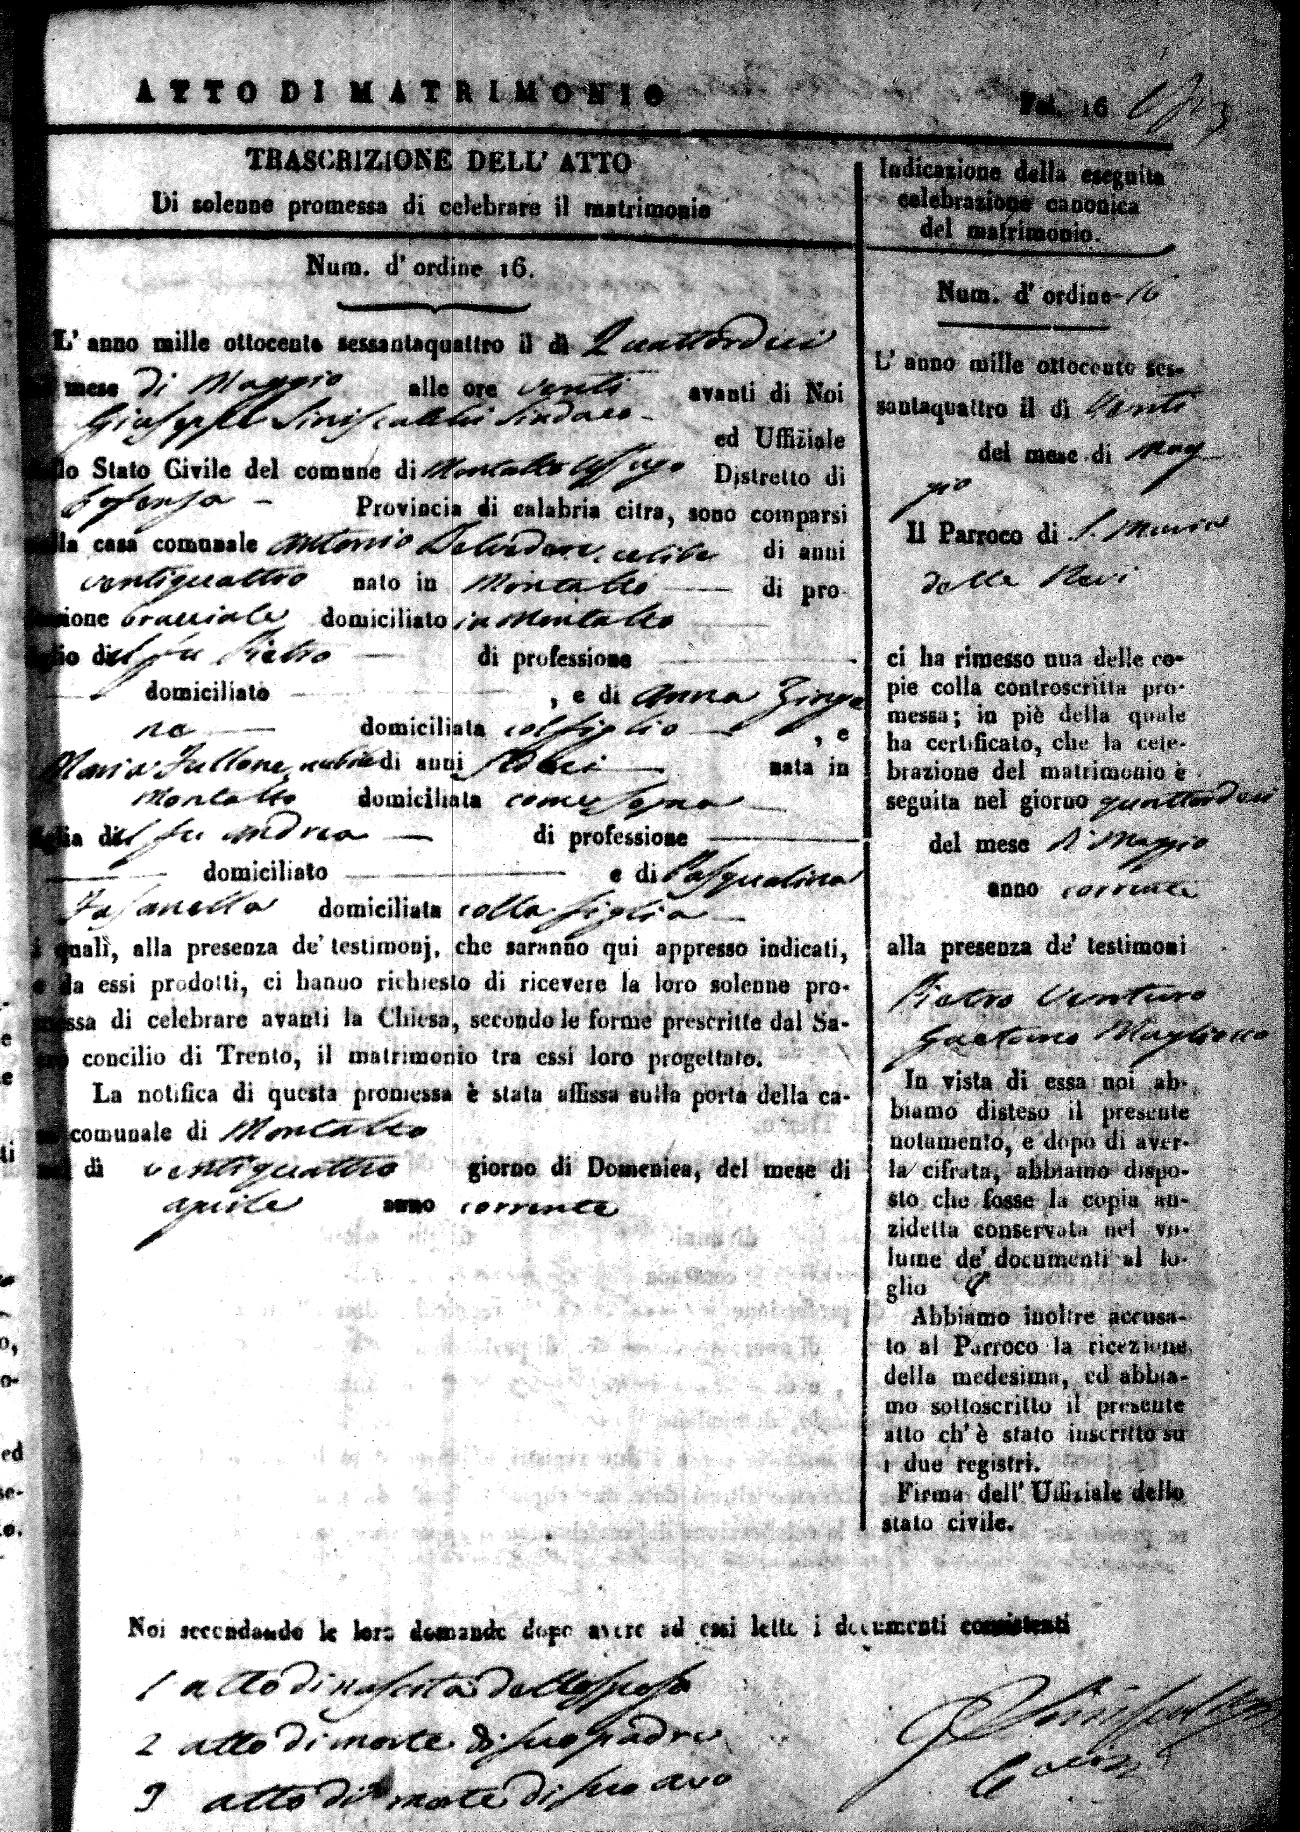 ATTO DI MATRIMONIO
Fol. 16
TRASCRIZIONE DELL' ATTO
Di solenne promessa di celebrare il matrimonio
Num. d' ordine 16.
L' anno mille ottocento sessantaquattro il dì Quattordici
mese di Maggio alle ore venti avanti di Noi
Giuseppe Siniscalchi Sindaco
ed Uffiziale
lo Stato Civile del comune di Montalto Uffugo Distretto di
Cosenza Provincia di calabria citra, sono comparsi
la casa comunale Antonio Belvedere celibe di anni
ventiquattro nato in Montalto di pro
sione bracciale domiciliato in Montalto
glio del fu Pietro di professione
domiciliato , e di Anna Zinga
ro domiciliata col figlio , e
Maria Fullone nubile di anni sedici nata in
Montalto domiciliata come sopra
glia del fu Andrea di professione
domiciliato e di Pasqualina
Fasanella domiciliata colla figlia
i quali, alla presenza de' testimonj, che saranno qui appresso indicati,
e da essi prodotti, ci hanno richiesto di ricevere la loro solenne pro-
messa di celebrare avanti la Chiesa, secondo le forme prescritte dal Sa-
cro concilio di Trento, il matrimonio tra essi loro progettato.
La notifica di questa promessa è stata affissa sulla porta della ca-
sa comunale di Montalto
dì ventiquattro giorno di Domenica, del mese di
aprile anno corrente
Indicazione della eseguita
celebrazione canonica
del matrimonio.
Num. d' ordine 16
L' anno mille ottocento ses-
santaquattro il dì venti
del mese di Mag
gio
Il Parroco di S. Maria
della Nevi
ci ha rimesso una delle co-
pie colla controscritta pro-
messa; in piè della quale
ha certificato, che la cele-
brazione del matrimonio è
seguita nel giorno quattordici
del mese di Maggio
anno corrente
alla presenza de' testimoni
Pietro Venturo
Gaetano Magliocco
In vista di essa noi ab-
biamo disteso il presente
notamento, e dopo di aver-
la cifrata, abbiamo dispo-
sto che fosse la copia an-
zidetta conservata nel vo-
lume de' documenti al fo-
glio 8
Abbiamo inoltre accusa-
to al Parroco la ricezione
della medesima, ed abbia-
mo sottoscritto il presente
atto ch' è stato inscritto su
i due registri.
Firma dell' Uffiziale dello
stato civile.
Noi secondando le loro domande dopo avere ad essi lette i documenti consistenti
1 atto di nascita dello sposo
2 atto di morte di suo padre
3 atto di morte di suo avo